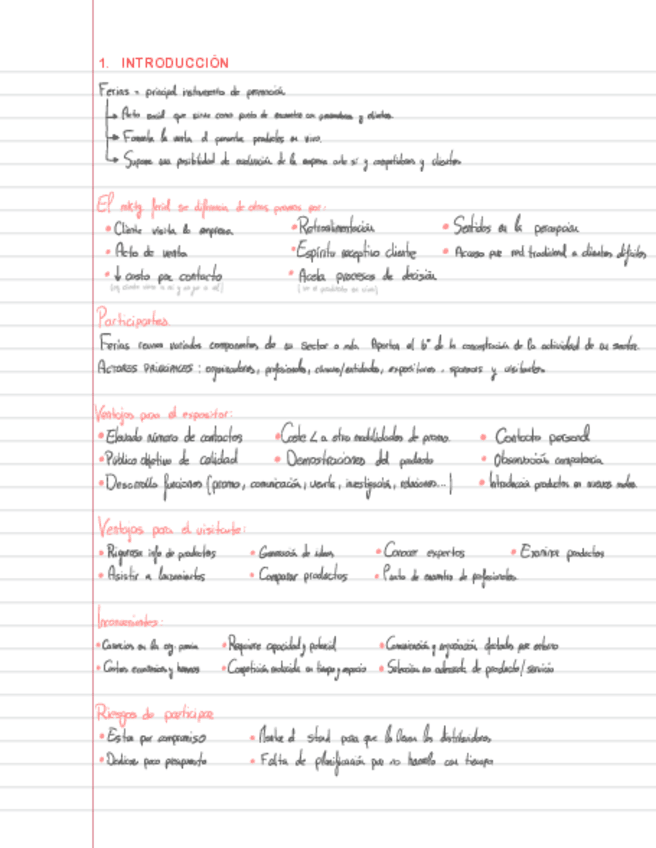 1. INTRODUCCIÓN
Ferias = principal instrumento de promoción
Acto social que sirve como punto de encuentro con proveedores y clientes.
Fomenta la venta al presentar productos en vivo.
Supone una posibilidad de evaluación de la empresa ante sí y competidores y clientes
El mktg ferial se diferencia de otras promos por:
• Cliente visita la empresa • Retroalimentación • Sentidos en la percepción
• Acto de venta • Espíritu receptivo cliente • Acceso por red tradicional a clientes difíciles
• ↓ costo por contacto • Acelera procesos de decisión
Participantes
Ferias reunen variados componentes de su sector o rama. Aportan el de la concentración de la actividad de su sector.
ACTORES PRINCIPALES: organizadores, profesionales, expositores, sponsors y visitantes.
Ventajas para el expositor:
• Elevado número de contactos • Coste < a otras modalidades de promo. • Contacto personal
• Público objetivo de calidad • Demostraciones del producto • Observación competencia
• Desarrolla funciones (promo, comunicación, venta, investigación, relaciones...) • Introducción productos en nuevos mdos.
Ventajas para el visitante:
• Rigurosa info de productos • Generación de ideas • Conocer expertos • Examinar productos
• Asistir a lanzamientos • Comparar productos • Punto de encuentro de profesionales
Inconvenientes:
• Carencias en la org. • Requiere capacidad y potencial • Comunicación y organización afectadas por entorno
• Costes económicos y humanos • Competición reducida en tiempo y espacio • Selección no adecuada de producto/servicio
Riesgos de participar
• Estar por compromiso • Montar el stand para que lo lleven los distribuidores
• Dedicar poco presupuesto • Falta de planificación por no hacerlo con tiempo